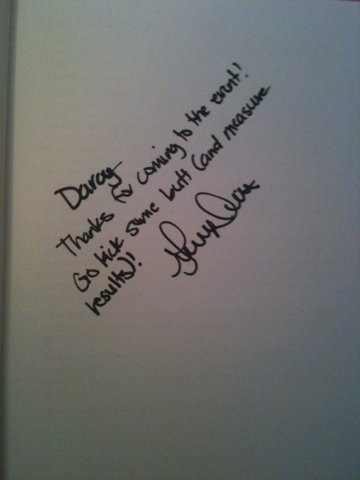 Darcy
Thanks for coming to the event!
Go kick some butt (and measure
results)!!